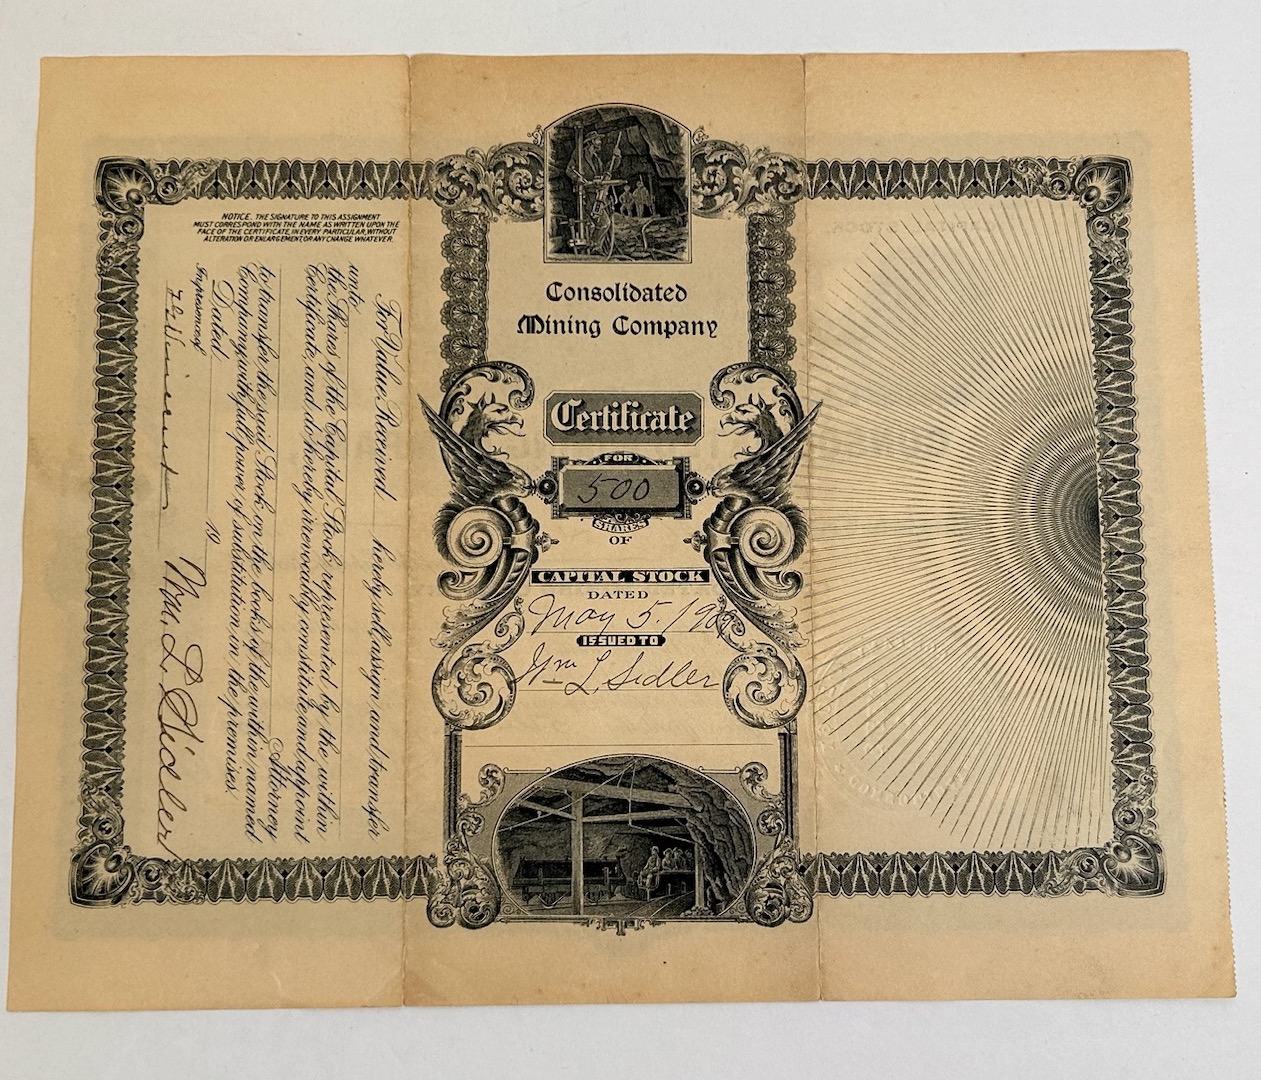 NOTICE. THE SIGNATURE TO THIS ASSIGNMENT
MUST CORRESPOND WITH THE NAME AS WRITTEN UPON THE
FACE OF THE CERTIFICATE, IN EVERY PARTICULAR, WITHOUT
ALTERATION OR ENLARGEMENT, OR ANY CHANGE WHATEVER.
For Value Received hereby sell, assign and transfer
unto
the Shares of the Capital Stock represented by the within
Certificate, and do hereby irrevocably constitute and appoint
Attorney
to transfer the said Stock on the books of the within named
Company with full power of substitution in the premises.
Dated 19
In presence of
Wm. L. Sidler
Consolidated
Mining Company
Certificate
FOR
500
SHARES
OF
CAPITAL STOCK
DATED
May 5. 1909
ISSUED TO
Wm L. Sidler